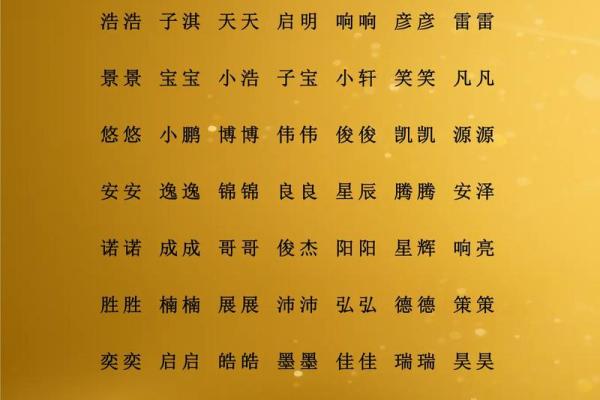 浩浩 子淇 天天 启明 响响 彦彦 雷雷
景景 宝宝 小浩 子宝 小轩 笑笑 凡凡
悠悠 小鹏 博博 伟伟 俊俊 凯凯 源源
安安 逸逸 锦锦 良良 星辰 腾腾 安泽
诺诺 成成 哥哥 俊杰 阳阳 星辉 响亮
胜胜 楠楠 展展 沛沛 弘弘 德德 策策
奕奕 启启 皓皓 墨墨 佳佳 瑞瑞 昊昊